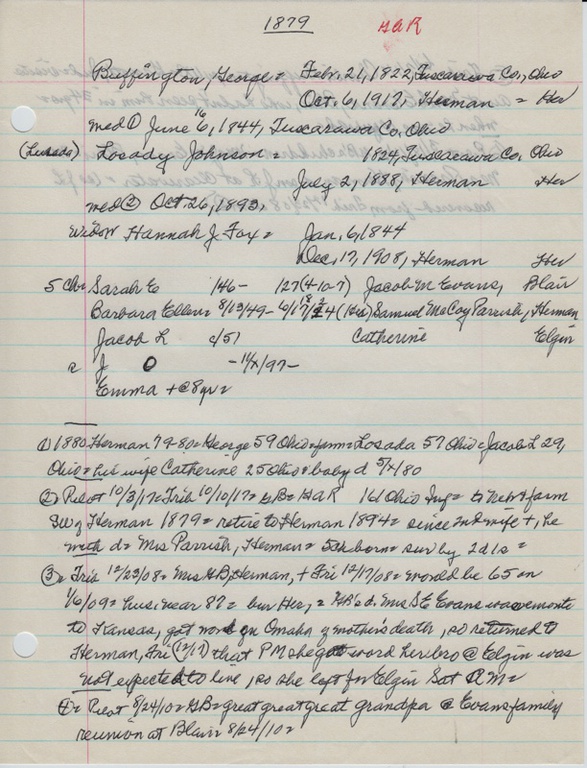 1879 GAR
Buffington, George = Febr. 21, 1822, Tuscarawa Co., Ohio
Oct. 6, 1917, Herman = Her
med ① June 16, 1844, Tuscarawa Co. Ohio
(Lusada) Losady Johnson = 1824, Tuscarawa Co, Ohio
July 2, 1888, Herman Her
med ② Oct 26, 1893,
Widow Hannah J. Fox = Jan. 6, 1844
Dec. 17, 1908, Herman Her
5 Ch = Sarah E 146- 127 (4-10-7) Jacob M. Evans, Blair
Barbara Ellen = 8/13/49- 6/17/ (Her) Samuel McCoy Parrish, Herman
Jacob L c/51 Catherine Elgin
J O -14/X/97-
Emma + @ 8 yr =
① 1880 Herman 79-80 = George 59 Ohio = farm = Losada 57 Ohio = Jacob L 29,
Ohio = his wife Catherine 25 Ohio = baby d 5/X/80
② Pilot 10/3/17 = Trib 10/10/17 = GB = GAR 161 Ohio Inf = to Neb = farm
SW of Herman 1879 = retire to Herman 1894 = since 2nd wife +, he
with d = Mrs Parrish, Herman = 5 ch born = sur by 2 ds =
③ = Trib 12/23/08 = Mrs GB, Herman, + Fri 12/17/08 = would be 65 on
1/6/09 = hus. near 87 = bur Her, = GB's d. Mrs SE Evans was enroute
to Kansas, got word in Omaha of mother's death, so returned to
Herman, Fri (12/17) that PM she got word her bro @ Elgin was
not expected to live, so she left for Elgin Sat AM =
④ = Pilot 8/24/10 = GB = great great great grandpa @ Evans family
reunion at Blair 8/24/10 =